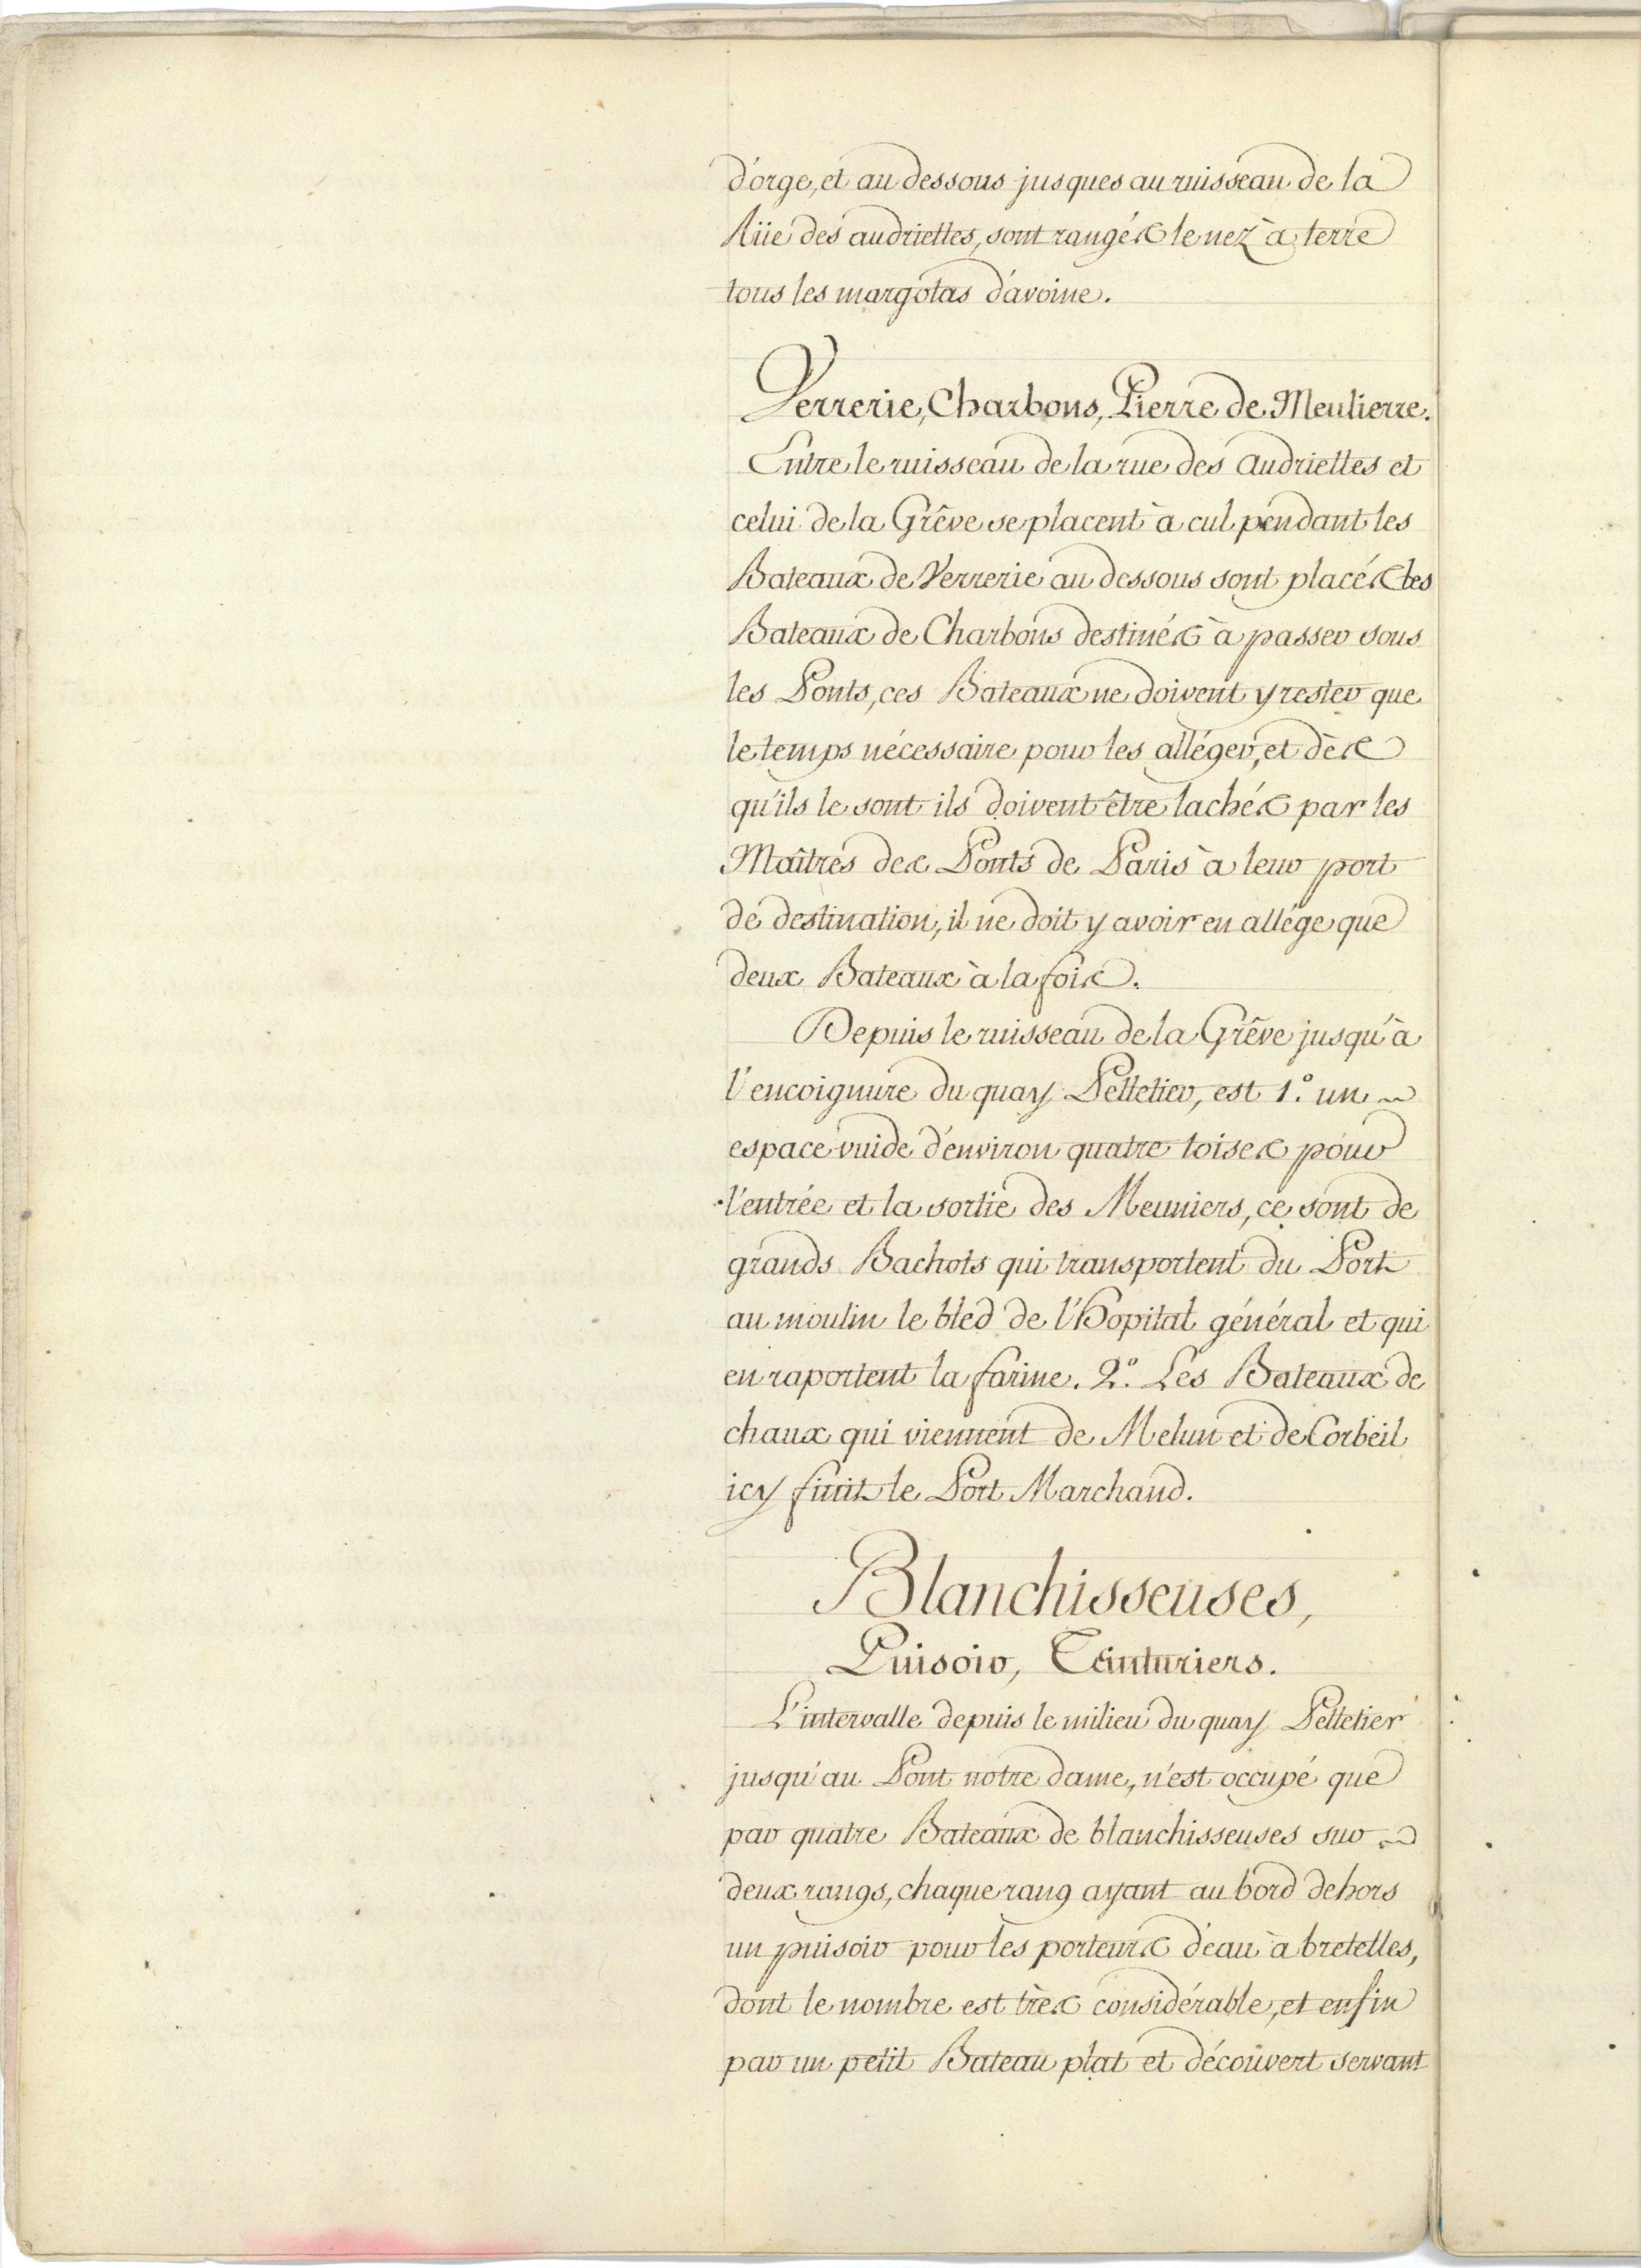 d'orge, et au dessous jusques au ruisseau de la
Rüe des audriettes, sont rangés le nez à terre
tous les margotas d'avoine.
Verrerie, Charbons, Pierre de Meulierre.
Entre le ruisseau de la rue des Audriettes et
celui de la Grêve se placent à cul pendant les
Bateaux de Verrerie au dessous sont placés les
Bateaux de Charbons destinés à passer sous
les Ponts, ces Bateaux ne doivent y rester que
le temps nécessaire pour les alléger, et dès
qu'ils le sont ils doivent être lachés par les
Maîtres des Ponts de Paris à leur port
de destination, il ne doit y avoir en allége que
deux Bateaux à la fois.
Depuis le ruisseau de la Grêve jusqu'à
l'encoignure du quay Pelletier, est 1.° un
espace vuide d'environ quatre toises pour
l'entrée et la sortie des Meuniers, ce sont de
grands Bachots qui transportent du Port
au moulin le bled de l'Hopital général et qui
en raportent la farine. 2.° Les Bateaux de
chaux qui viennent de Melun et de Corbeil
icy finit le Port Marchand.
Blanchisseuses,
Puisoir, Teinturiers.
L'intervalle depuis le milieu du quay Pelletier
jusqu'au Pont notre dame, n'est occupé que
par quatre Bateaux de blanchisseuses sur
deux rangs, chaque rang ayant au bord dehors
un puisoir pour les porteurs d'eau à bretelles,
dont le nombre est très considérable, et enfin
par un petit Bateau plat et découvert servant